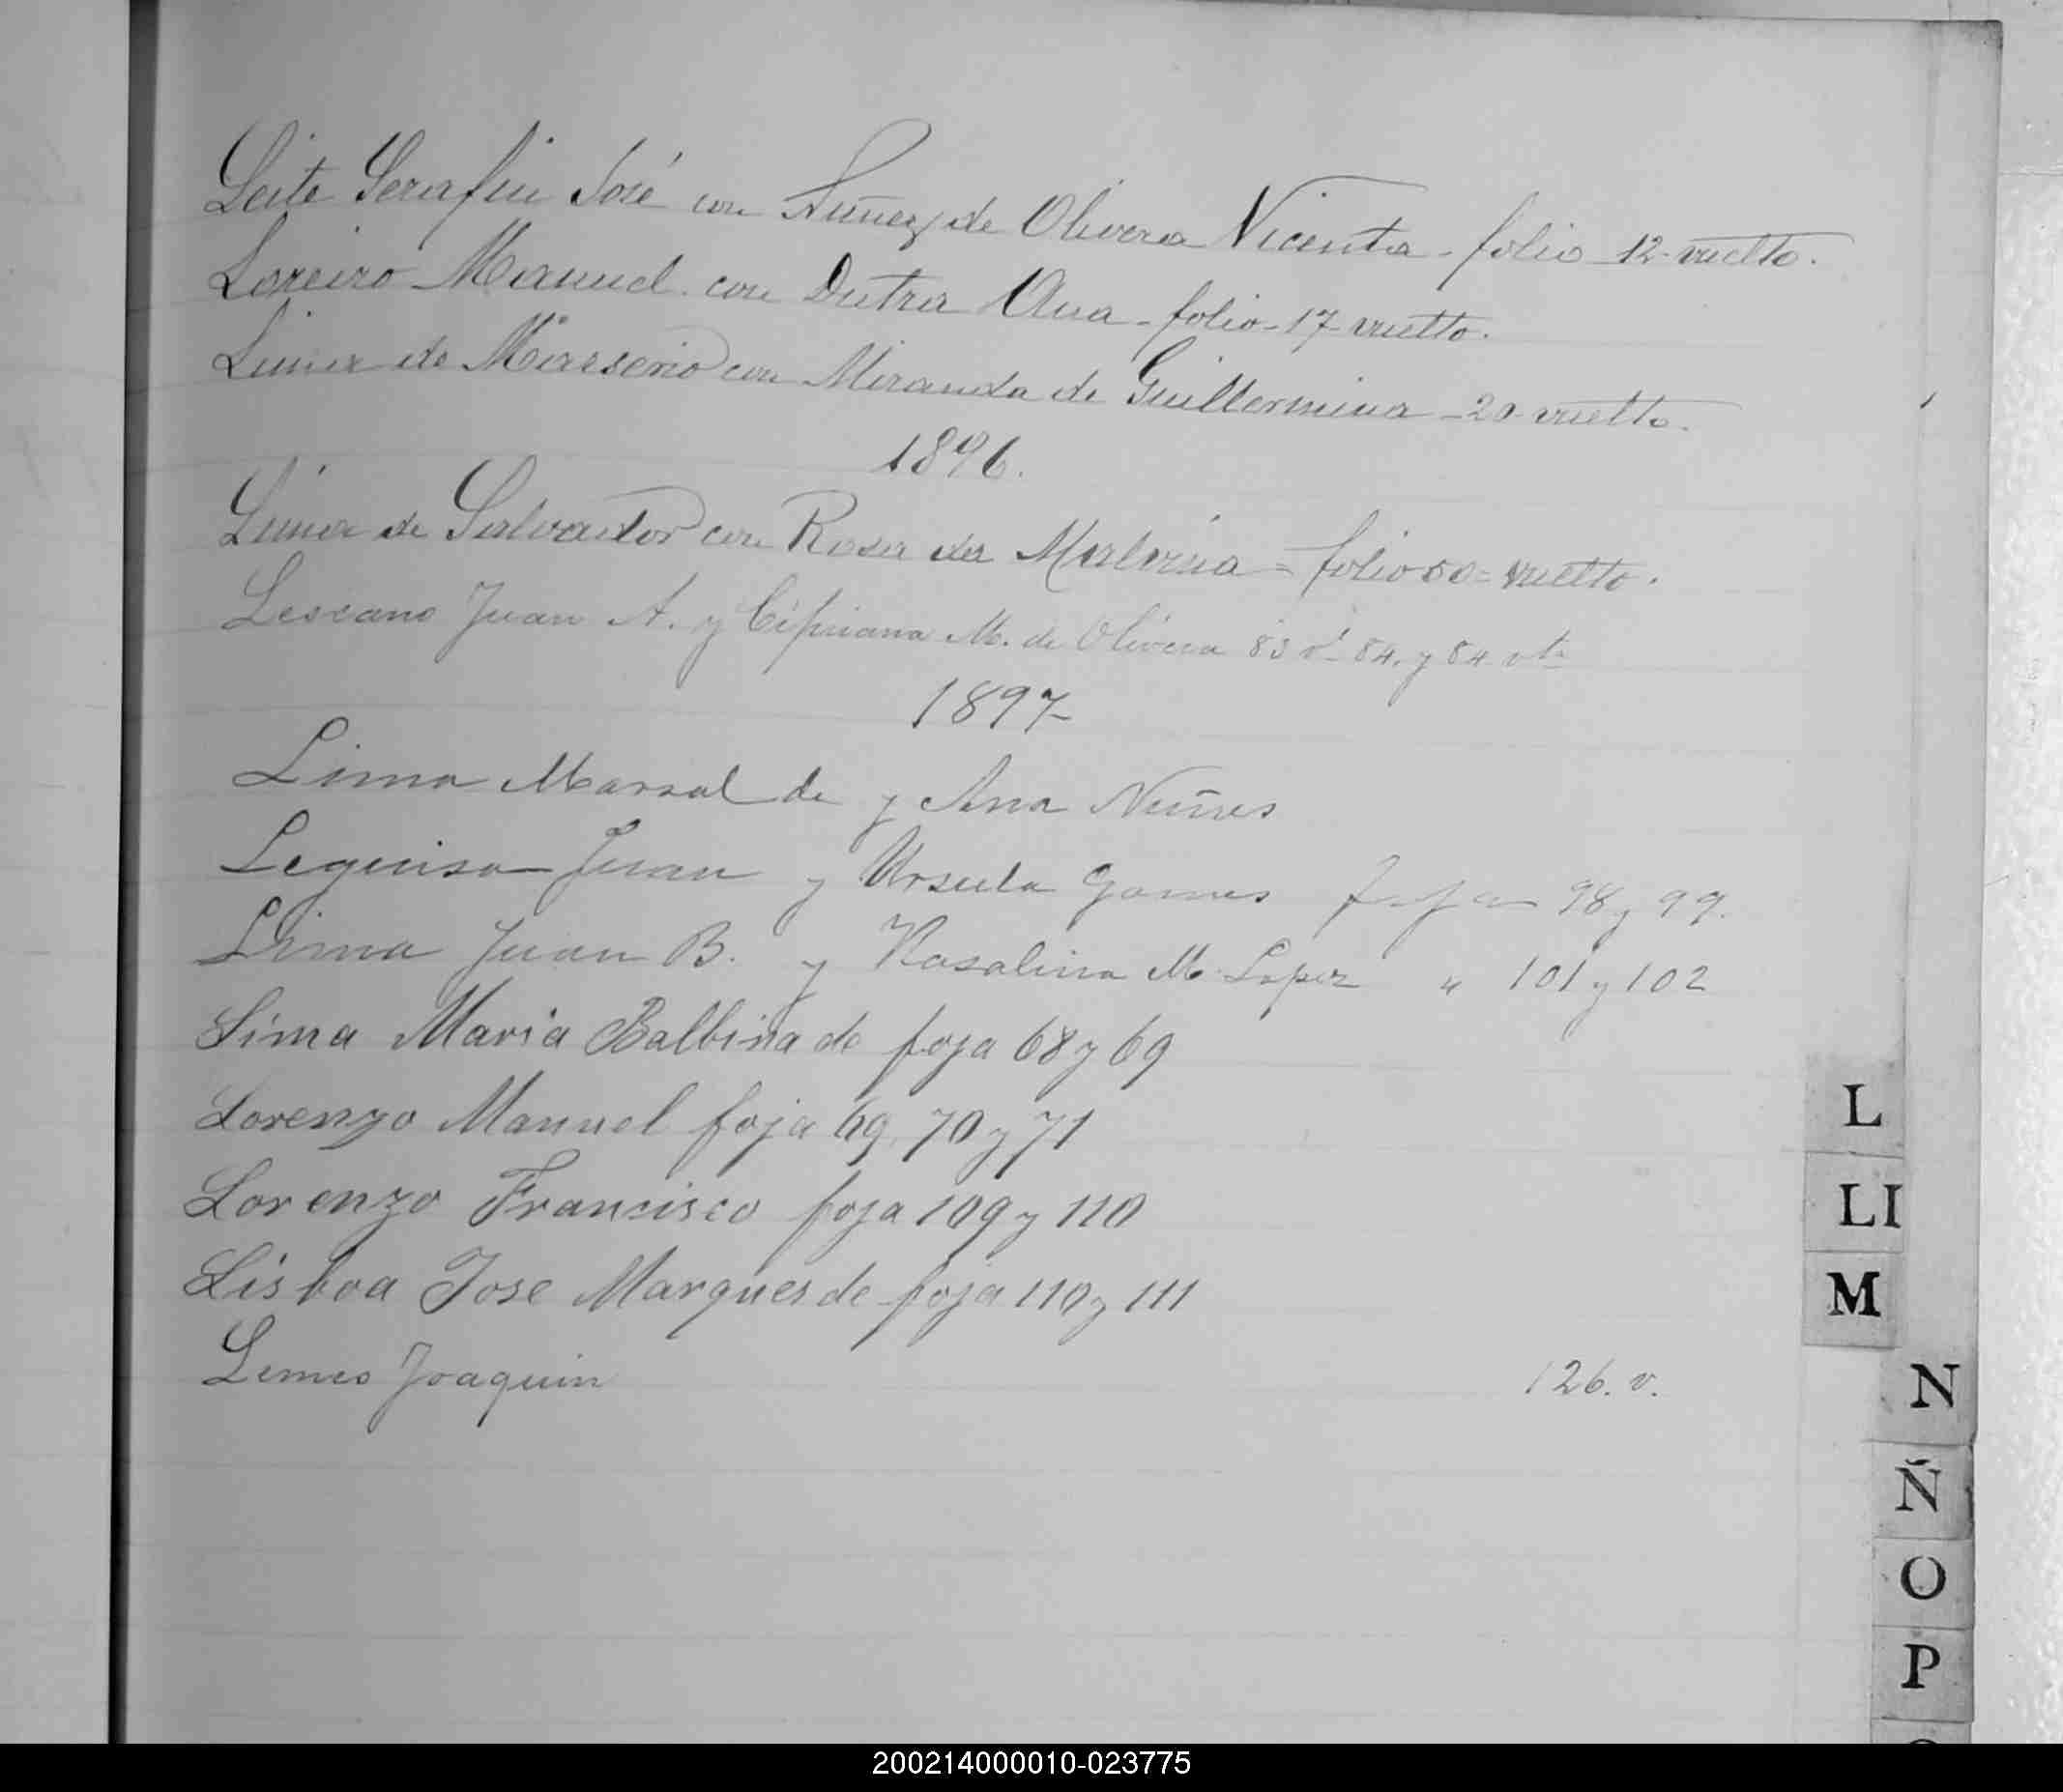 Leite Serafin José con Nuñez de Olivera Vicenta - folio 12 - vuelto.
Loreiro Manuel con Dutra Ana - folio - 17 - vuelto.
Lima de con Miranda de Guillermina - 20 - vuelto.
1896.
Lima de Salvador con Rosa da Malvina = folio 50 = vuelto.
Lescano Juan A. y Cipriana M. de Olivera 83 v.t 84. y 84 vto
1897
Lima Marsal de y Ana Nuñes
Leguisa Juan y Ursula Gomes foja 98 y 99.
Lima Juan B. y Rosalina M. Lopez " 101 y 102
Lima Maria Balbina de foja 68 y 69
Lorenzo Manuel foja 69, 70 y 71
Lorenzo Francisco foja 109 y 110
Lisboa Jose Marques de foja 110 y 111
Lemes Joaquin 126. v.
L
LI
M
N
Ñ
O
P
200214000010-023775